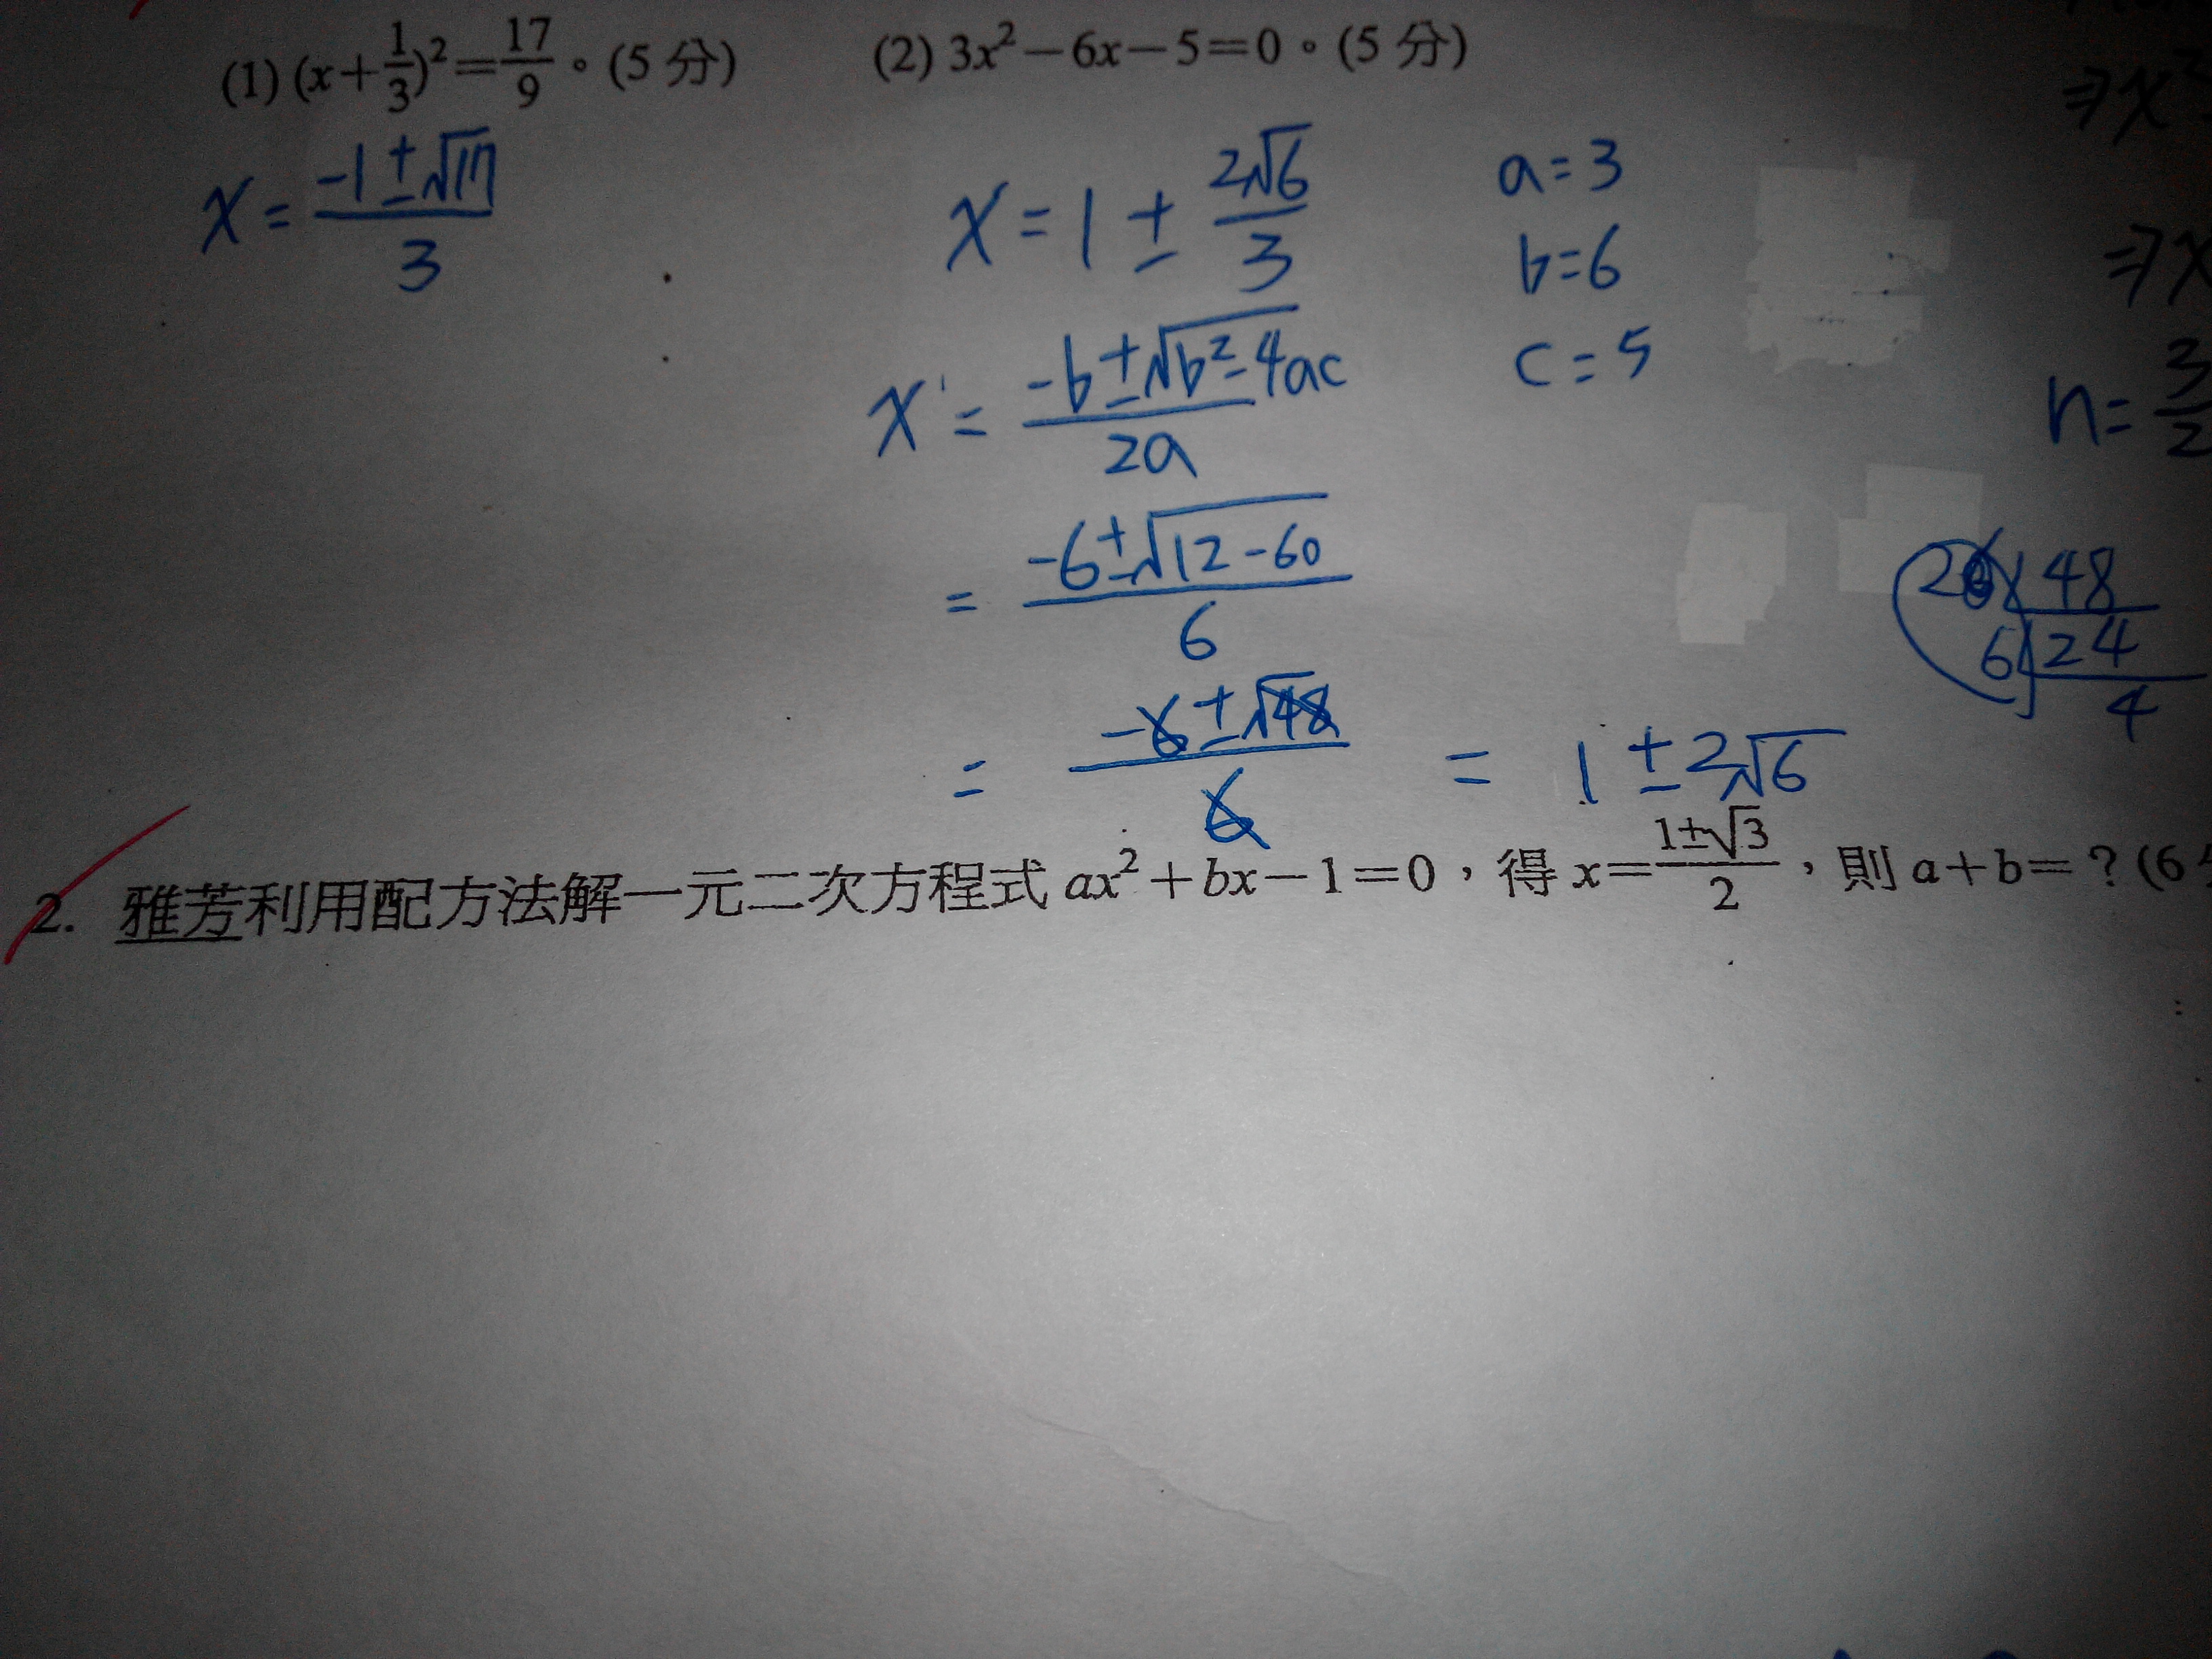 (1) (x+1/3)²=17/9。(5 分)
(2) 3x²−6x−5=0。(5 分)
x = (-1±√17)/3
x = 1 ± 2√6/3
a=3
b=6
c=5
x = (-b±√b²-4ac)/2a
= (-6±√12-60)/6
= (-6±√48)/6 = 1±2√6
⇒x²
⇒x
n=3/2
48
6 24
4
2. 雅芳利用配方法解一元二次方程式 ax²+bx−1=0,得 x=(1±√3)/2,則 a+b=?(6